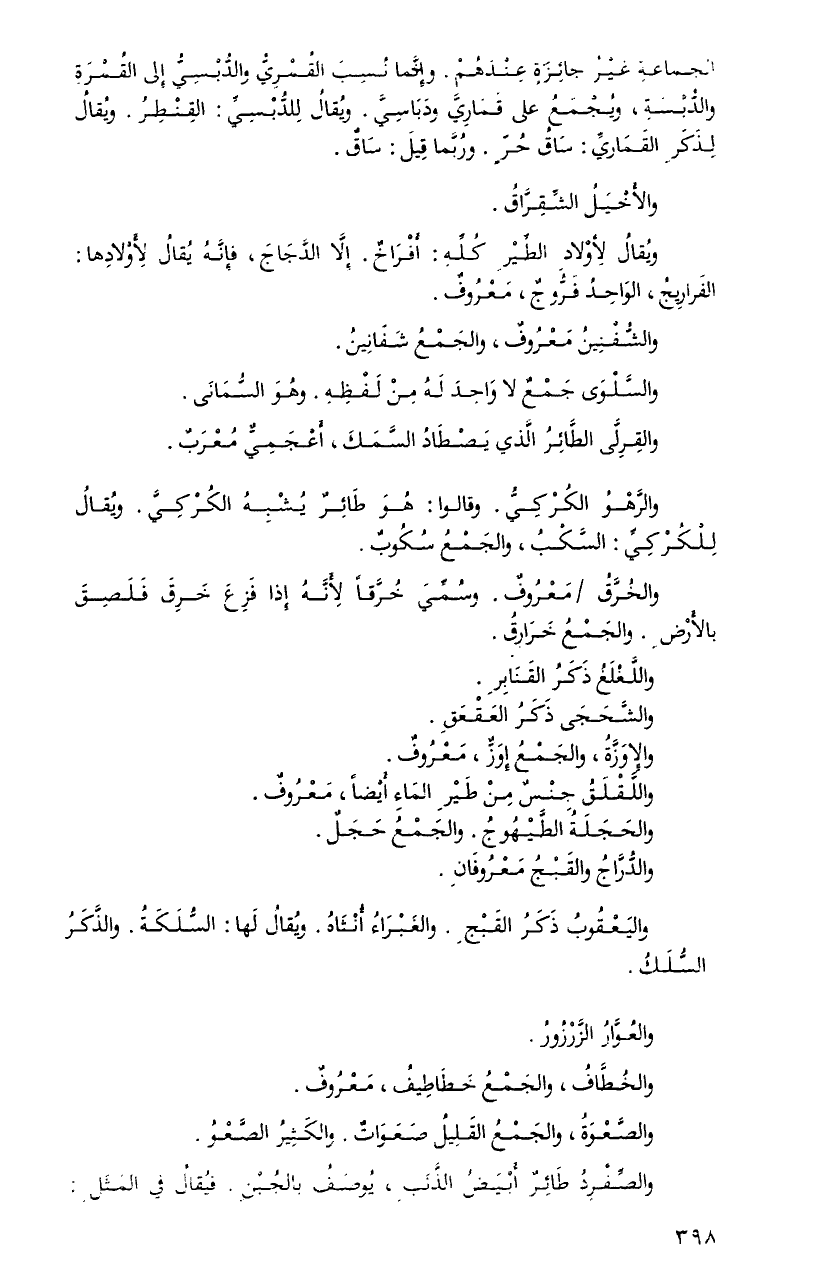 الجماعة غَيْرُ جائِزَةٍ عِنْدَهُمْ . وإنَّما نُسِبَ القُمْرِيُّ والدُّبْسِيُّ إلى القُمْرَةِ
والدُّبْسَةِ ، ويُجْمَعُ على قَمَارِيَّ ودَبَاسِيَّ . ويُقالُ لِلدُّبْسِيِّ : القِنْطِرُ . ويُقالُ
لِذَكَرِ القَمَارِيِّ : سَاقُ حُرّ . ورُبَّما قِيلَ : سَاقٌ .
والأَخْيَلُ الشِّقِرَّاقُ .
ويُقالُ لِأَوْلادِ الطَّيْرِ كُلِّهِ : أَفْرَاخٌ . إلَّا الدَّجَاجَ ، فإنَّهُ يُقالُ لِأَوْلادِها :
الفَرارِيجُ ، الوَاحِدُ فَرُّوجٌ ، مَعْرُوفٌ .
والشُّفْنِينُ مَعْرُوفٌ ، والجَمْعُ شَفَانِينُ .
والسَّلْوَى جَمْعٌ لا وَاحِدَ لَهُ مِنْ لَفْظِهِ . وهُوَ السُّمَانَى .
والقِرِلَّى الطَّائِرُ الَّذي يَصْطَادُ السَّمَكَ ، أَعْجَمِيٌّ مُعْرَبٌ .
والرَّهْوُ الكُرْكِيُّ . وقالوا : هُوَ طَائِرٌ يُشْبِهُ الكُرْكِيَّ . ويُقالُ
لِلْكُرْكِيِّ : السَّكْبُ ، والجَمْعُ سُكُوبٌ .
والخُرَّقُ / مَعْرُوفٌ . وسُمِّيَ خُرَّقاً لِأَنَّهُ إذا فَزِعَ خَرِقَ فَلَصِقَ
بالأَرْضِ . والجَمْعُ خَرَارِقُ .
واللَّغْلَغُ ذَكَرُ القَنَابِرِ .
والشَّحَجَى ذَكَرُ العَقْعَقِ .
والإوَزَّةُ ، والجَمْعُ إوَزٌّ ، مَعْرُوفٌ .
واللَّقْلَقُ جِنْسٌ مِنْ طَيْرِ المَاءِ أَيْضاً ، مَعْرُوفٌ .
والحَجَلَةُ الطَّيْهُوجُ . والجَمْعُ حَجَلٌ .
والدُّرَّاجُ والقَبْجُ مَعْرُوفَانِ .
واليَعْقُوبُ ذَكَرُ القَبْجِ . والغَبْرَاءُ أُنْثَاهُ . ويُقالُ لَها : السُّلَكَةُ . والذَّكَرُ
السُّلَكُ .
والعُوَّارُ الزَّرْزُورُ .
والخُطَّافُ ، والجَمْعُ خَطَاطِيفُ ، مَعْرُوفٌ .
والصَّعْوَةُ ، والجَمْعُ القَلِيلُ صَعَوَاتٌ . والكَثِيرُ الصَّعْوُ .
والصِّفْرِدُ طَائِرٌ أَبْيَضُ الذَّنَبِ ، يُوصَفُ بالجُبْنِ . فيُقالُ في المَثَلِ :
٣٩٨